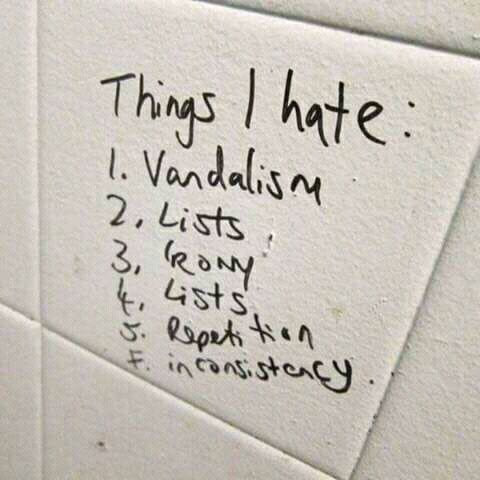 Things I hate:
1. Vandalism
2, Lists
3, Irony
4. Lists
5. Repetition
F. inconsistency.